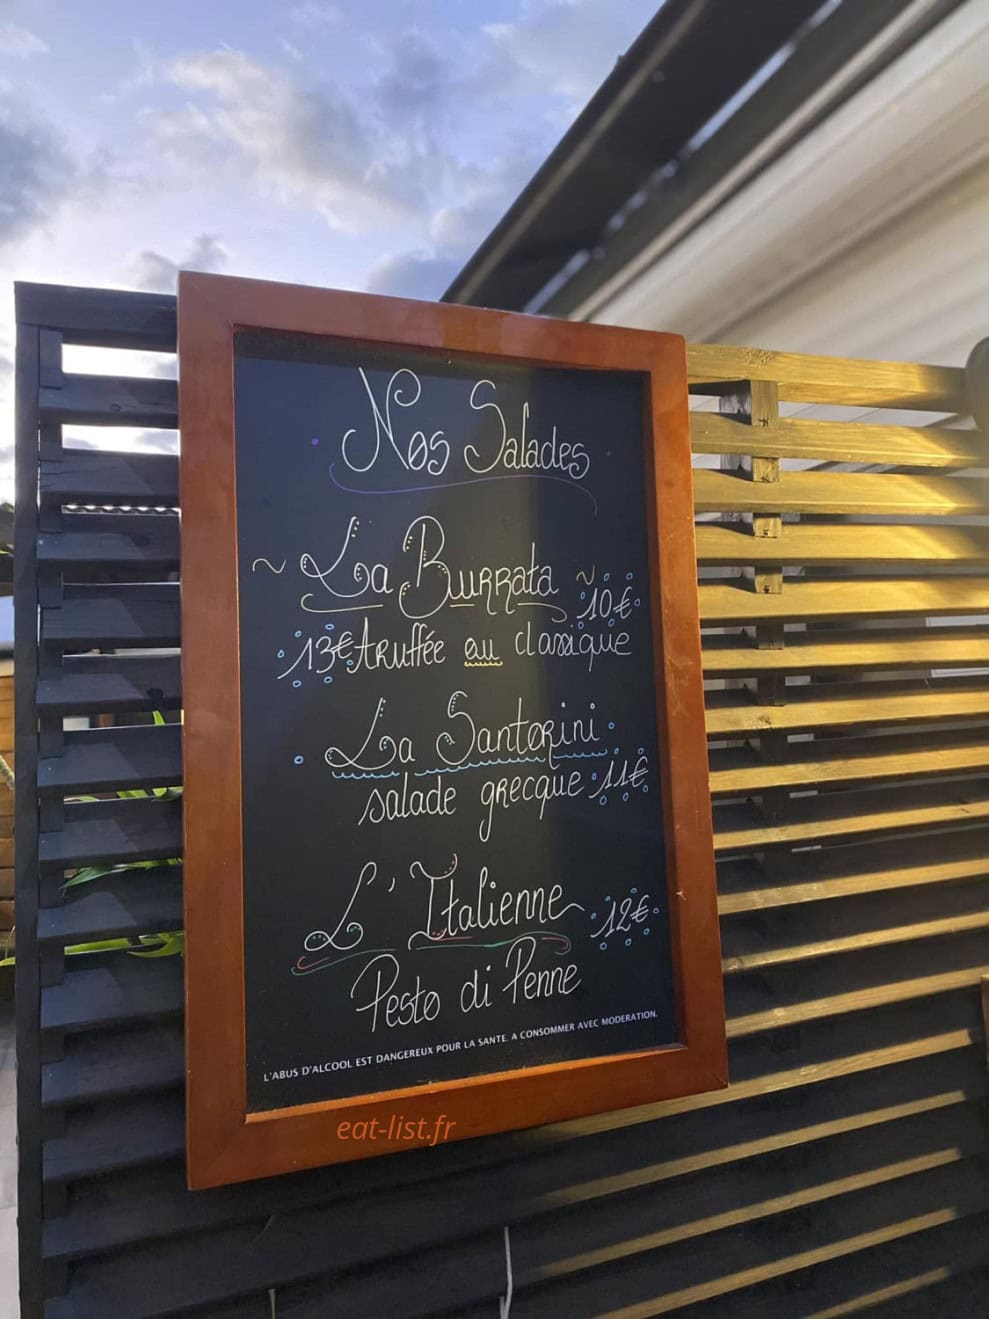 Nos Salades
~ La Burrata ~
10€
13€ truffée au classique
La Santorini
salade grecque 11€
L'Italienne 12€
Pesto di Penne
L'ABUS D'ALCOOL EST DANGEREUX POUR LA SANTE. A CONSOMMER AVEC MODERATION.
eat-list.fr